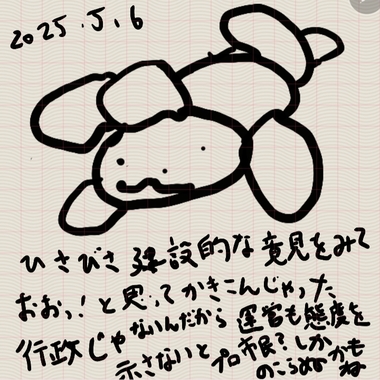 2025.5.6
ひさびさ建設的な意見をみて
おおっ!と思ってかきこんじゃった
行政じゃないんだから 運営も態度を
示さないと プロ市民?しか
のこらぬかもね